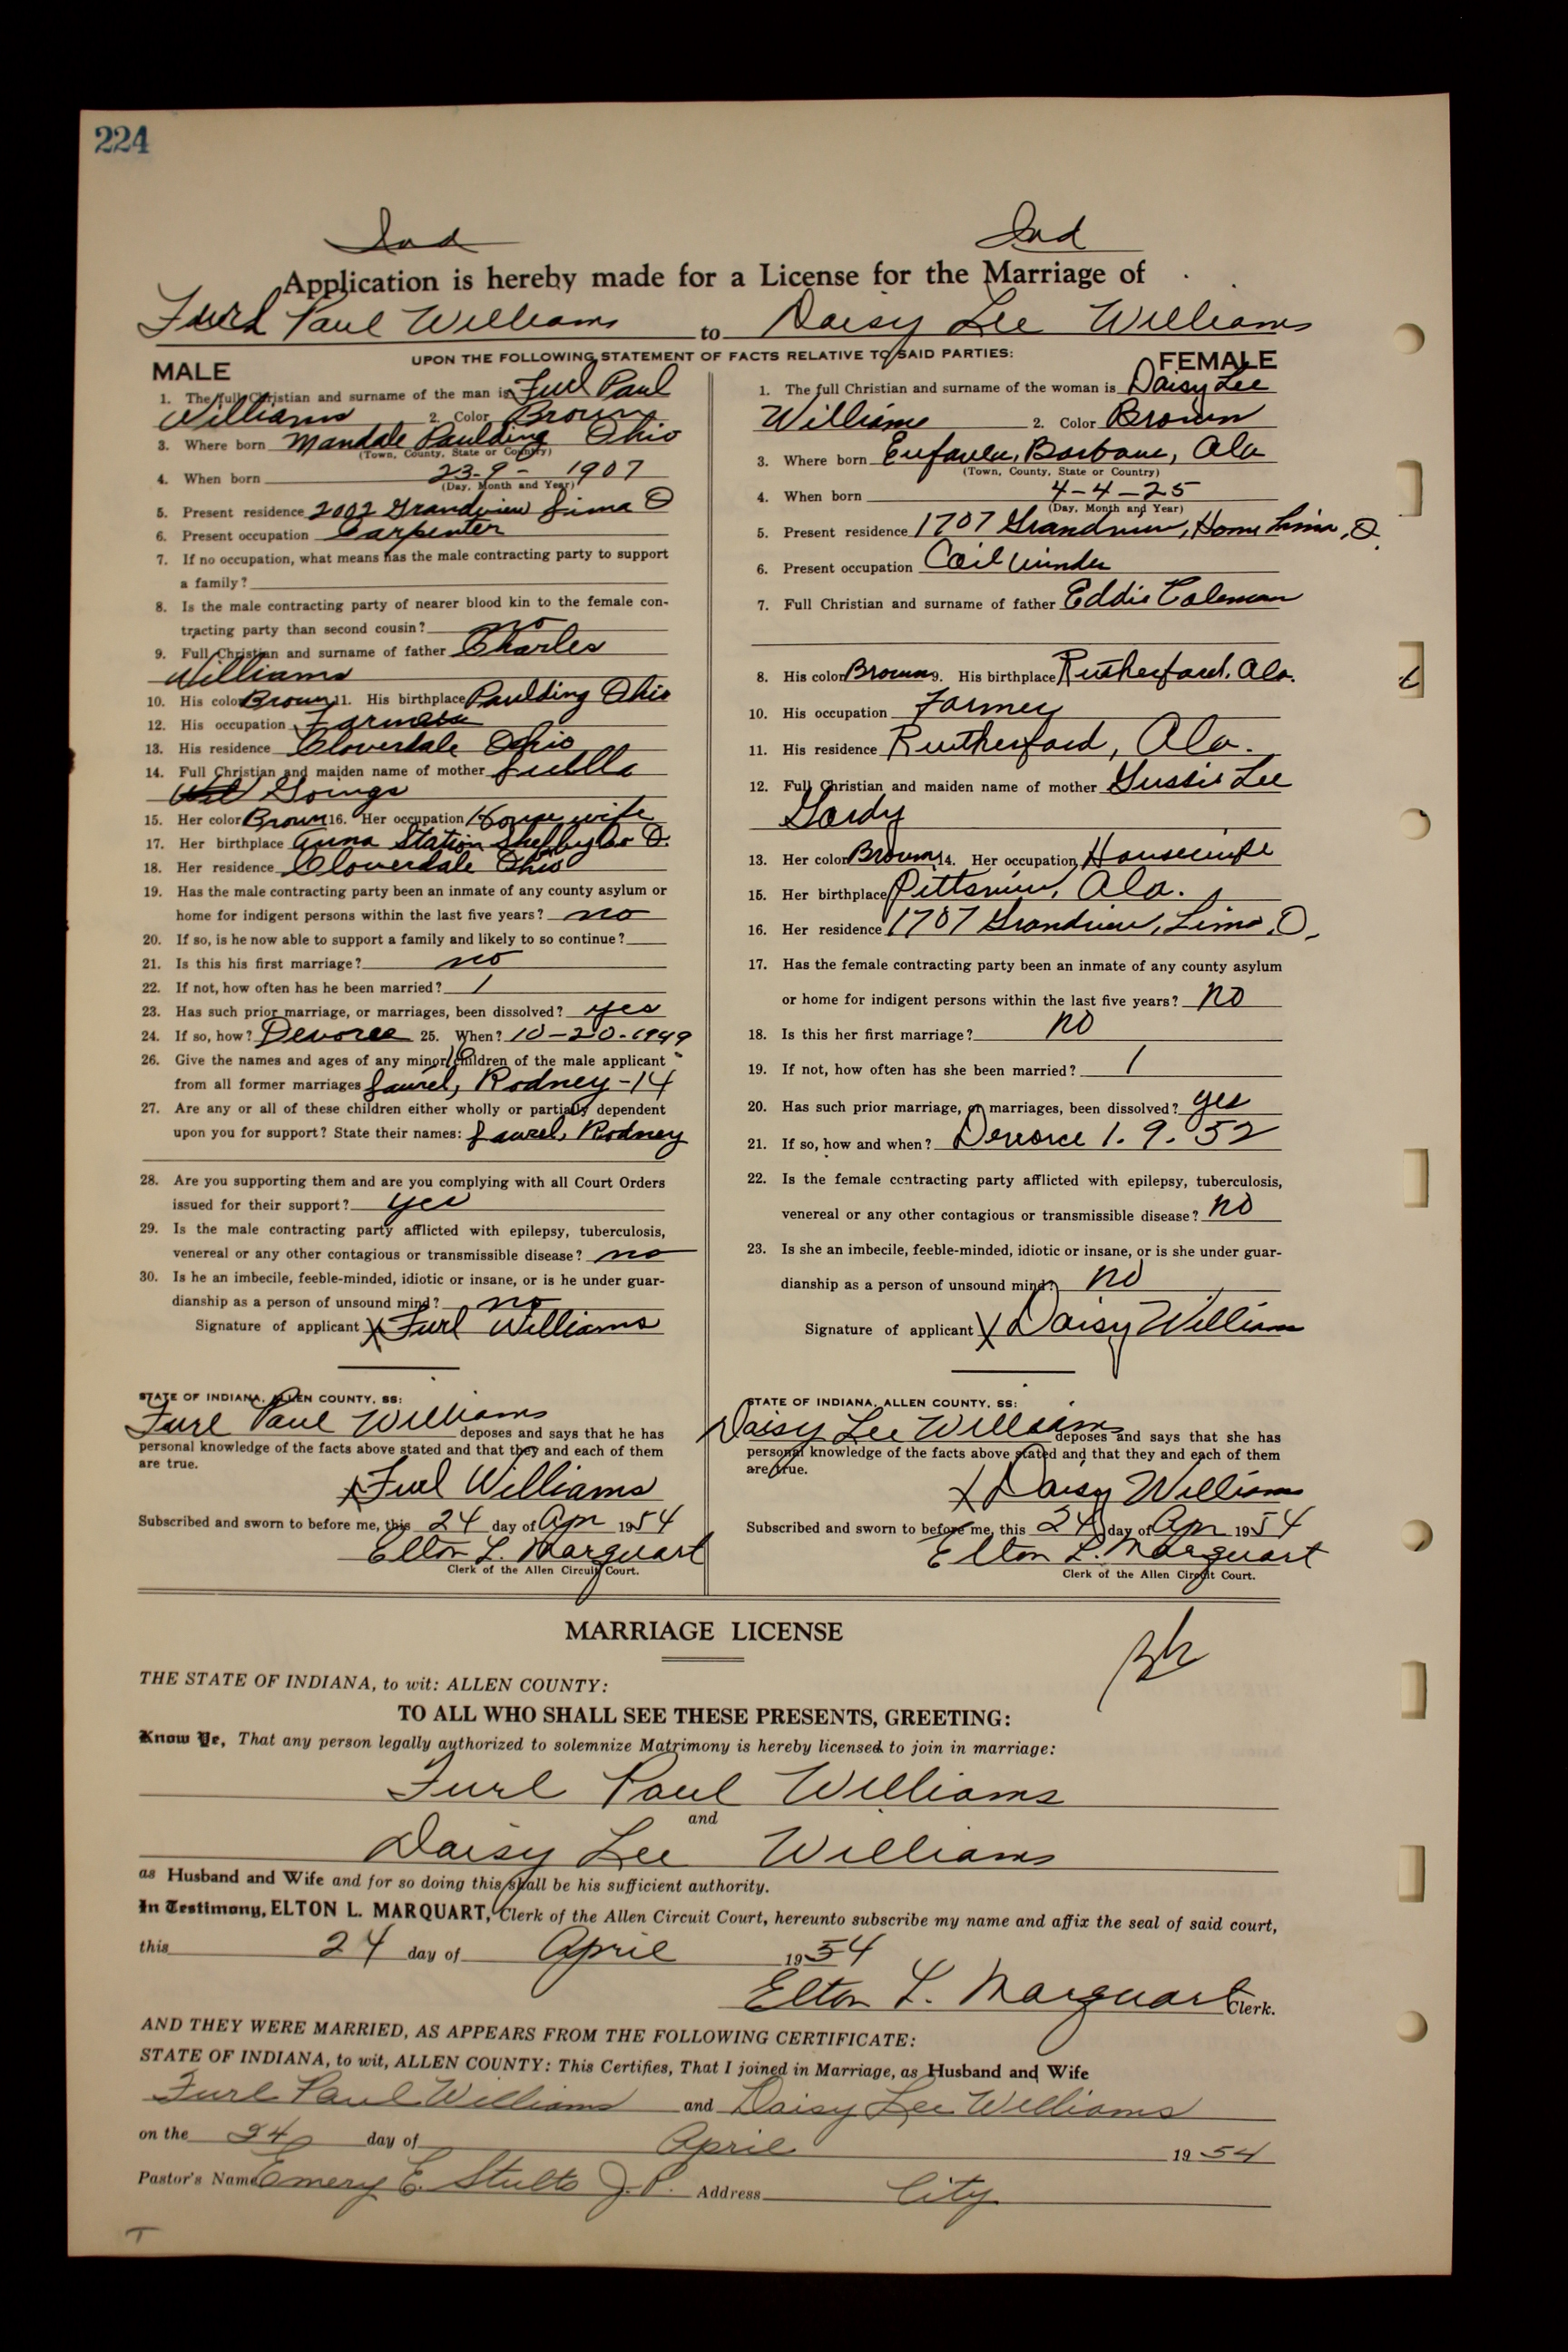 224
Ind Ind
Application is hereby made for a License for the Marriage of
Furl Paul Williams to Daisy Lee Williams
UPON THE FOLLOWING STATEMENT OF FACTS RELATIVE TO SAID PARTIES:
MALE
1. The full Christian and surname of the man is Furl Paul
Williams 2. Color Brown
3. Where born Mandale Paulding Ohio
(Town, County, State or Country)
4. When born 23-9- 1907
(Day, Month and Year)
5. Present residence 2002 Grandview Lima O
6. Present occupation Carpenter
7. If no occupation, what means has the male contracting party to support
a family?
8. Is the male contracting party of nearer blood kin to the female con-
tracting party than second cousin? no
9. Full Christian and surname of father Charles
Williams
10. His color Brown 11. His birthplace Paulding Ohio
12. His occupation Farmer
13. His residence Cloverdale Ohio
14. Full Christian and maiden name of mother Luella
Goings
15. Her color Brown 16. Her occupation House wife
17. Her birthplace Anna Station Shelby Co O.
18. Her residence Cloverdale Ohio
19. Has the male contracting party been an inmate of any county asylum or
home for indigent persons within the last five years? no
20. If so, is he now able to support a family and likely to so continue?
21. Is this his first marriage? no
22. If not, how often has he been married? 1
23. Has such prior marriage, or marriages, been dissolved? yes
24. If so, how? Devorce 25. When? 10-20-1949
26. Give the names and ages of any minor children of the male applicant
from all former marriages Laurel, Rodney-14
27. Are any or all of these children either wholly or partially dependent
upon you for support? State their names: Laurel, Rodney
28. Are you supporting them and are you complying with all Court Orders
issued for their support? yes
29. Is the male contracting party afflicted with epilepsy, tuberculosis,
venereal or any other contagious or transmissible disease? no
30. Is he an imbecile, feeble-minded, idiotic or insane, or is he under guar-
dianship as a person of unsound mind? no
Signature of applicant X Furl Williams
STATE OF INDIANA, ALLEN COUNTY, SS:
Furl Paul Williams deposes and says that he has
personal knowledge of the facts above stated and that they and each of them
are true.
X Furl Williams
Subscribed and sworn to before me, this 24 day of Apr 1954
Elton L. Marquart
Clerk of the Allen Circuit Court.
FEMALE
1. The full Christian and surname of the woman is Daisy Lee
Williams 2. Color Brown
3. Where born Eufaula, Barbour, Ala
(Town, County, State or Country)
4. When born 4-4-25
(Day, Month and Year)
5. Present residence 1707 Grandview, Home Lima, O.
6. Present occupation Coil winder
7. Full Christian and surname of father Eddie Coleman
8. His color Brown 9. His birthplace Rutherford, Ala.
10. His occupation Farmer
11. His residence Rutherford, Ala.
12. Full Christian and maiden name of mother Gussie Lee
Gordy
13. Her color Brown 14. Her occupation Housewife
15. Her birthplace Pittsview, Ala.
16. Her residence 1707 Grandview, Lima, O.
17. Has the female contracting party been an inmate of any county asylum
or home for indigent persons within the last five years? no
18. Is this her first marriage? no
19. If not, how often has she been married? 1
20. Has such prior marriage, or marriages, been dissolved? yes
21. If so, how and when? Devorce 1.9.52
22. Is the female contracting party afflicted with epilepsy, tuberculosis,
venereal or any other contagious or transmissible disease? no
23. Is she an imbecile, feeble-minded, idiotic or insane, or is she under guar-
dianship as a person of unsound mind? no
Signature of applicant X Daisy Williams
STATE OF INDIANA, ALLEN COUNTY, SS:
Daisy Lee Williams deposes and says that she has
personal knowledge of the facts above stated and that they and each of them
are true.
X Daisy Williams
Subscribed and sworn to before me, this 24 day of Apr 1954
Elton L. Marquart
Clerk of the Allen Circuit Court.
MARRIAGE LICENSE
THE STATE OF INDIANA, to wit: ALLEN COUNTY:
TO ALL WHO SHALL SEE THESE PRESENTS, GREETING:
Know Ye, That any person legally authorized to solemnize Matrimony is hereby licensed to join in marriage:
Furl Paul Williams
and
Daisy Lee Williams
as Husband and Wife and for so doing this shall be his sufficient authority.
In Testimony, ELTON L. MARQUART, Clerk of the Allen Circuit Court, hereunto subscribe my name and affix the seal of said court,
this 24 day of April 1954
Elton L. Marquart Clerk.
AND THEY WERE MARRIED, AS APPEARS FROM THE FOLLOWING CERTIFICATE:
STATE OF INDIANA, to wit, ALLEN COUNTY: This Certifies, That I joined in Marriage, as Husband and Wife
Furl Paul Williams and Daisy Lee Williams
on the 24 day of April 1954
Pastor's Name Emery E. Stults J.P. Address City
T